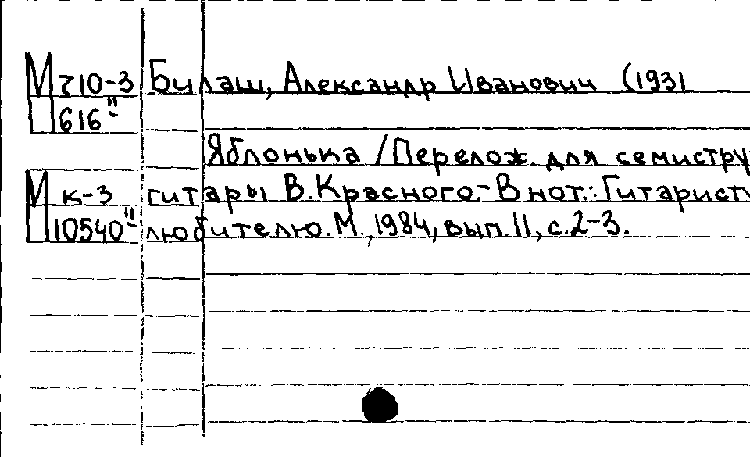 М 710-3 Билаш, Александр Иванович (1931
П 616"
Яблонька / Перелож. для семистру
М к-3 гитары В. Красного.- В нот.: Гитарист
П 10540" любителю. М., 1984, вып. 11, с. 2-3.